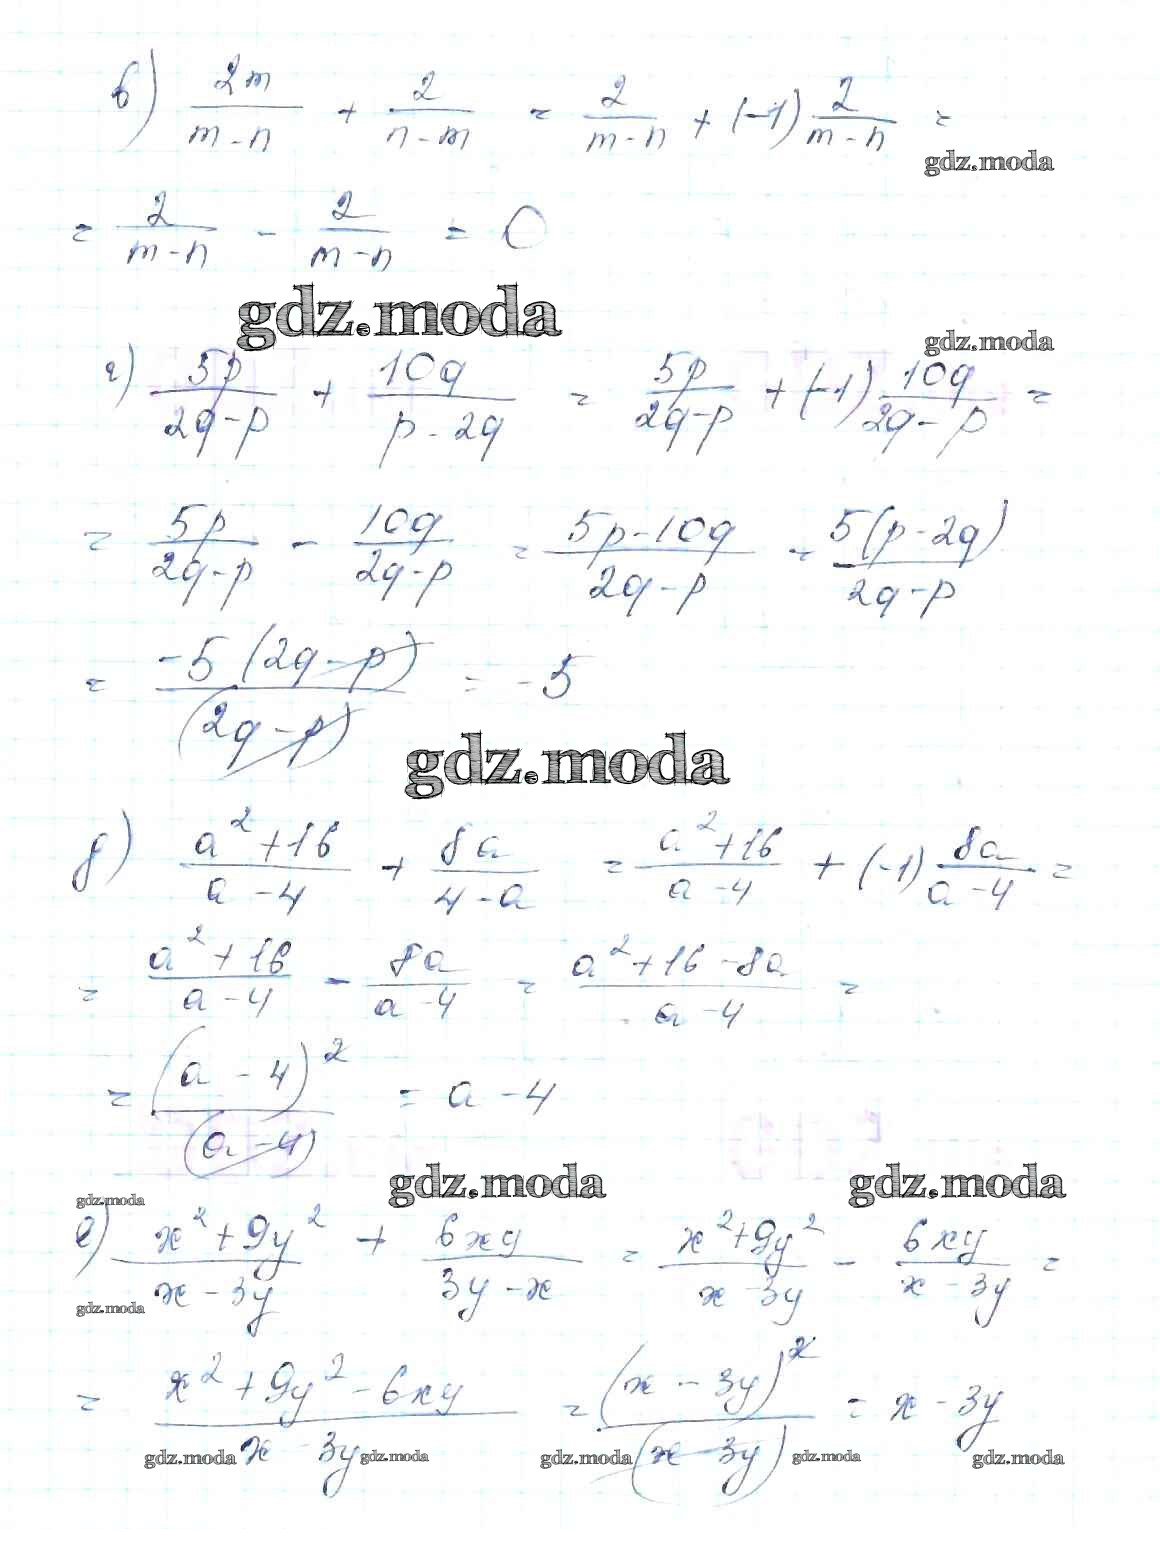 в) 2m/(m-n) + 2/(n-m) = 2/(m-n) + (-1) 2/(m-n) =
gdz.moda
= 2/(m-n) - 2/(m-n) = 0
gdz.moda
gdz.moda
г) 5p/(2q-p) + 10q/(p-2q) = 5p/(2q-p) + (-1) 10q/(2q-p) =
= 5p/(2q-p) - 10q/(2q-p) = (5p-10q)/(2q-p) = 5(p-2q)/(2q-p)
= -5(2q-p)/(2q-p) = -5
gdz.moda
д) (a²+16)/(a-4) + 8a/(4-a) = (a²+16)/(a-4) + (-1) 8a/(a-4) =
= (a²+16)/(a-4) - 8a/(a-4) = (a²+16-8a)/(a-4) =
= (a-4)²/(a-4) = a-4
gdz.moda gdz.moda
gdz.moda
е) (x²+9y²)/(x-3y) + 6xy/(3y-x) = (x²+9y²)/(x-3y) - 6xy/(x-3y) =
gdz.moda
= (x²+9y²-6xy)/(x-3y) = (x-3y)²/(x-3y) = x-3y
gdz.moda gdz.moda gdz.moda gdz.moda gdz.moda